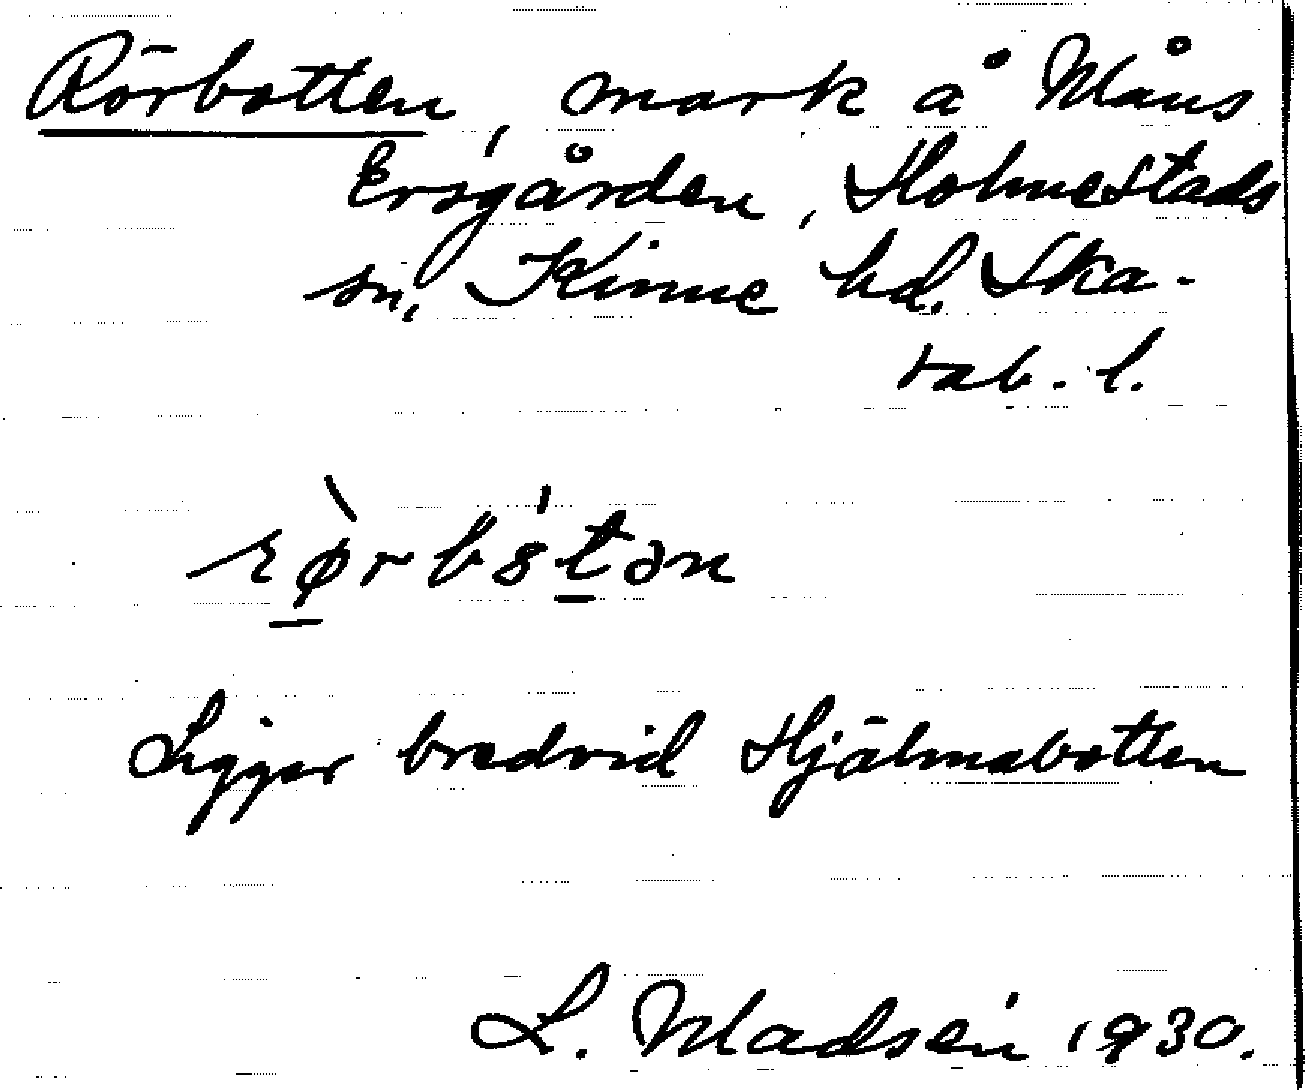 Rörbotten, mark å Måns
Ersgården, Holmestads
sn, Kinne hd. Ska-
rab. l.
rø̀rbs̍tən
Ligger bredvid Hjälmabotten
L. Madsén 1930.